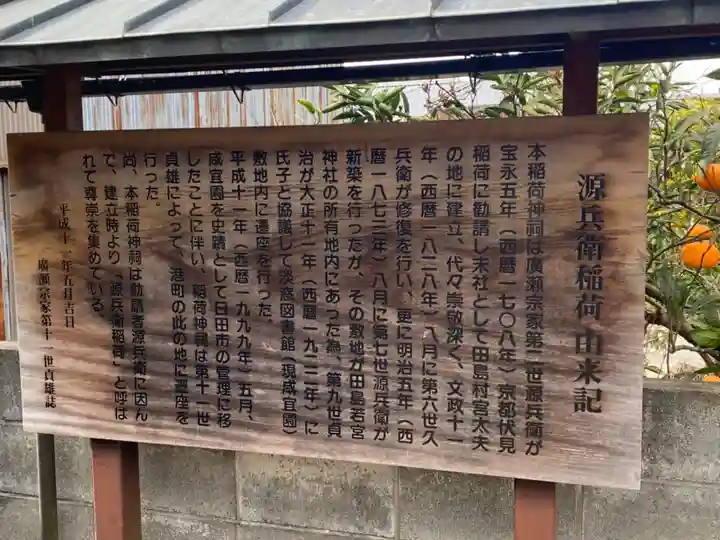 源兵衛稲荷由来記
本稲荷神祠は廣瀬宗家第二世源兵衛が
宝永五年(西暦一七〇八年)京都伏見
稲荷に勧請し末社として田島村宮太夫
の地に建立、代々崇敬深く、文政十一
年(西暦一八二八年)八月に第六世久
兵衛が修復を行い、更に明治五年(西
暦一八七三年)八月に第七世源兵衛が
新築を行ったが、その敷地が田島若宮
神社の所有地内にあった為、第九世貞
治が大正十一年(西暦一九二二年)に
氏子と協議して淡窓図書館(現咸宜園)
敷地内に遷座を行った。
平成十一年(西暦一九九九年)五月、
咸宜園を史蹟として日田市の管理に移
したことに伴い、稲荷神祠は第十一世
貞雄によって、港町の此の地に遷座を
行った。
尚、本稲荷神祠は勧請者源兵衛に因ん
で、建立時より「源兵衛稲荷」と呼ば
れて尊崇を集めている。
平成十一年五月吉日
廣瀬宗家第十一世貞雄誌